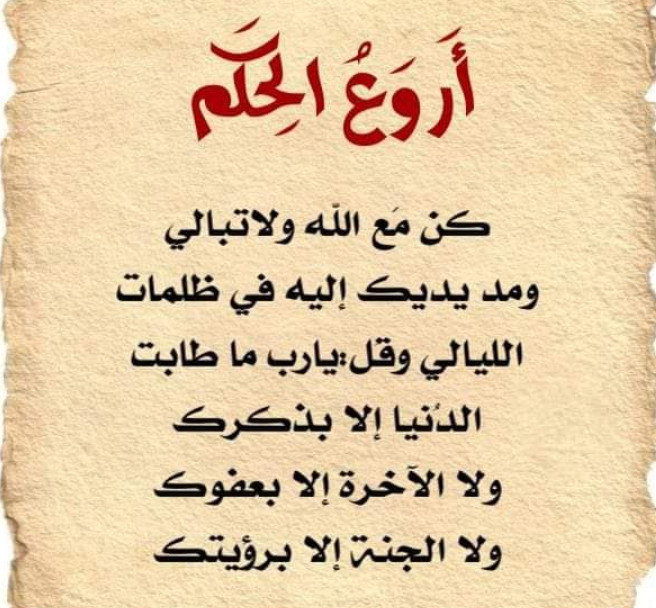 أَروَعُ الحِكَم
كن مَع اللّه ولاتبالي
ومد يديك إليه في ظلمات
الليالي وقل:يارب ما طابت
الدُنيا إلا بذكرك
ولا الآخرة إلا بعفوك
ولا الجنة إلا برؤيتك